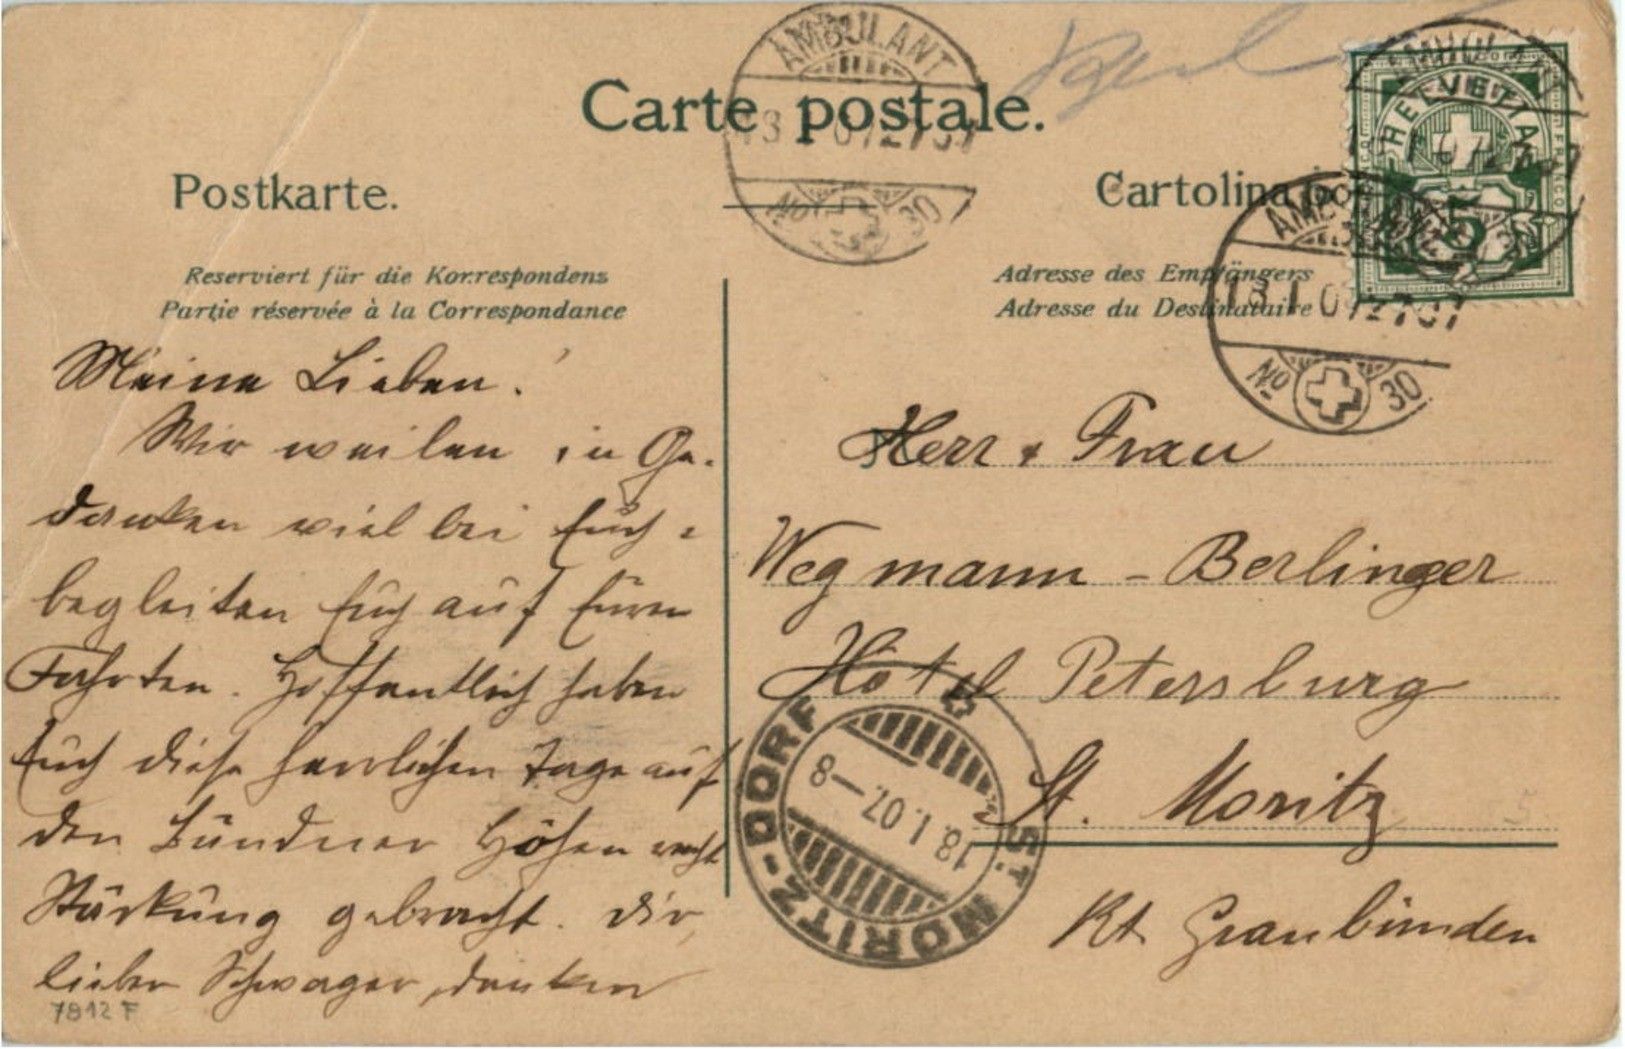 Carte postale.
Postkarte.
Cartolina po
Reserviert für die Korrespondens
Partie réservée à la Correspondance
Adresse des Empfängers
Adresse du Destinataire
AMBULANT
No 30
HELVETIA
FRANCO
5
AMBULANT
No 30
Meine Lieben!
Wir weilen in Ge-
danken viel bei Euch &
begleiten Euch auf Euren
Fahrten. Hoffentlich haben
Euch diese herrlichen Tage auf
den Bündner Höhen recht
Stärkung gebracht. Dir,
lieber Schwager, danken
7812 F
Herr & Frau
Wegmann-Berlinger
Hôtel Petersburg
St. Moritz
Kt. Graubünden
ST. MORITZ-DORF
18.I.07.–8